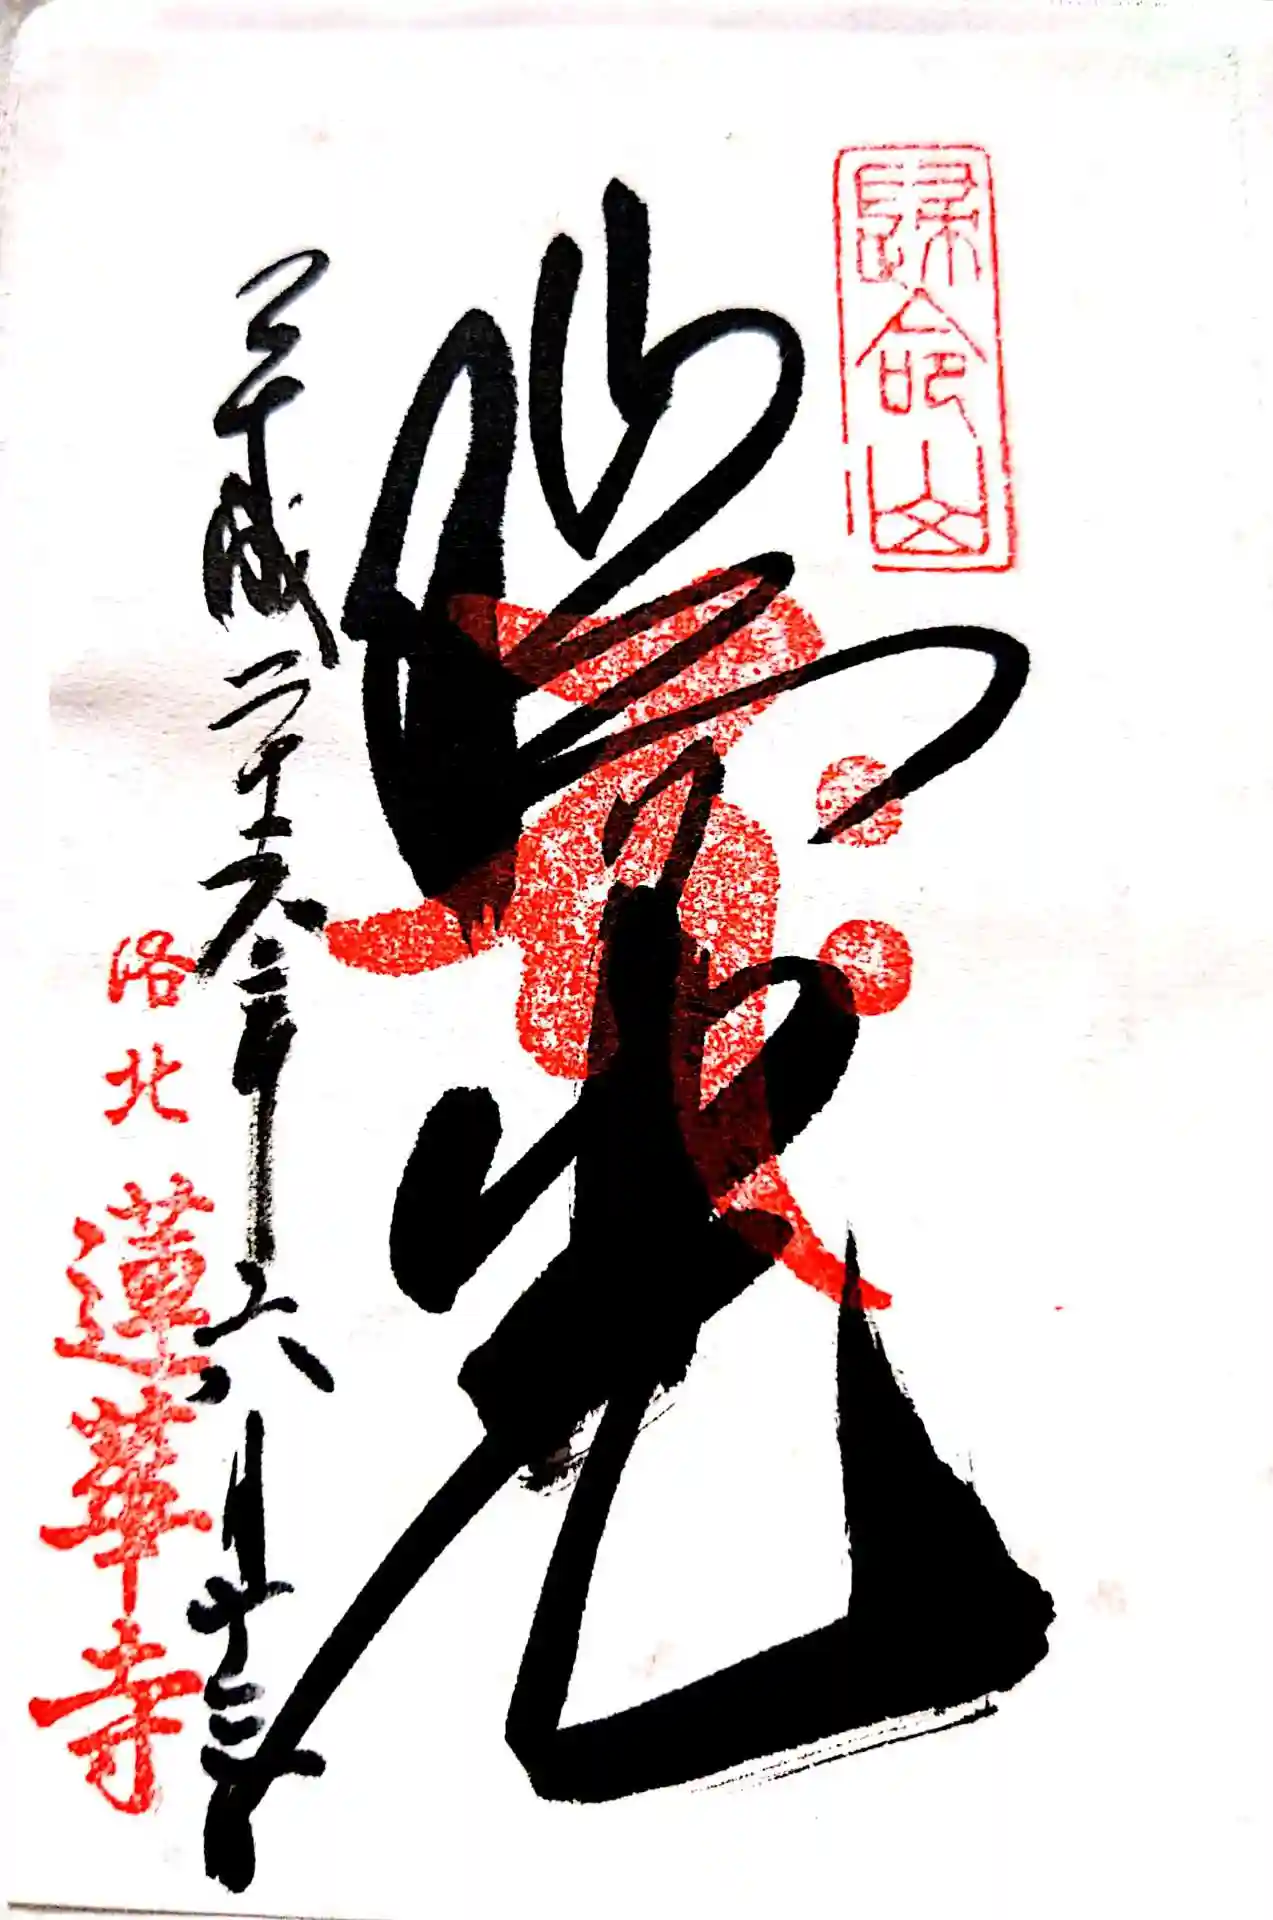 歸命山
光
平成二十六年六月十三日
洛北
蓮華寺